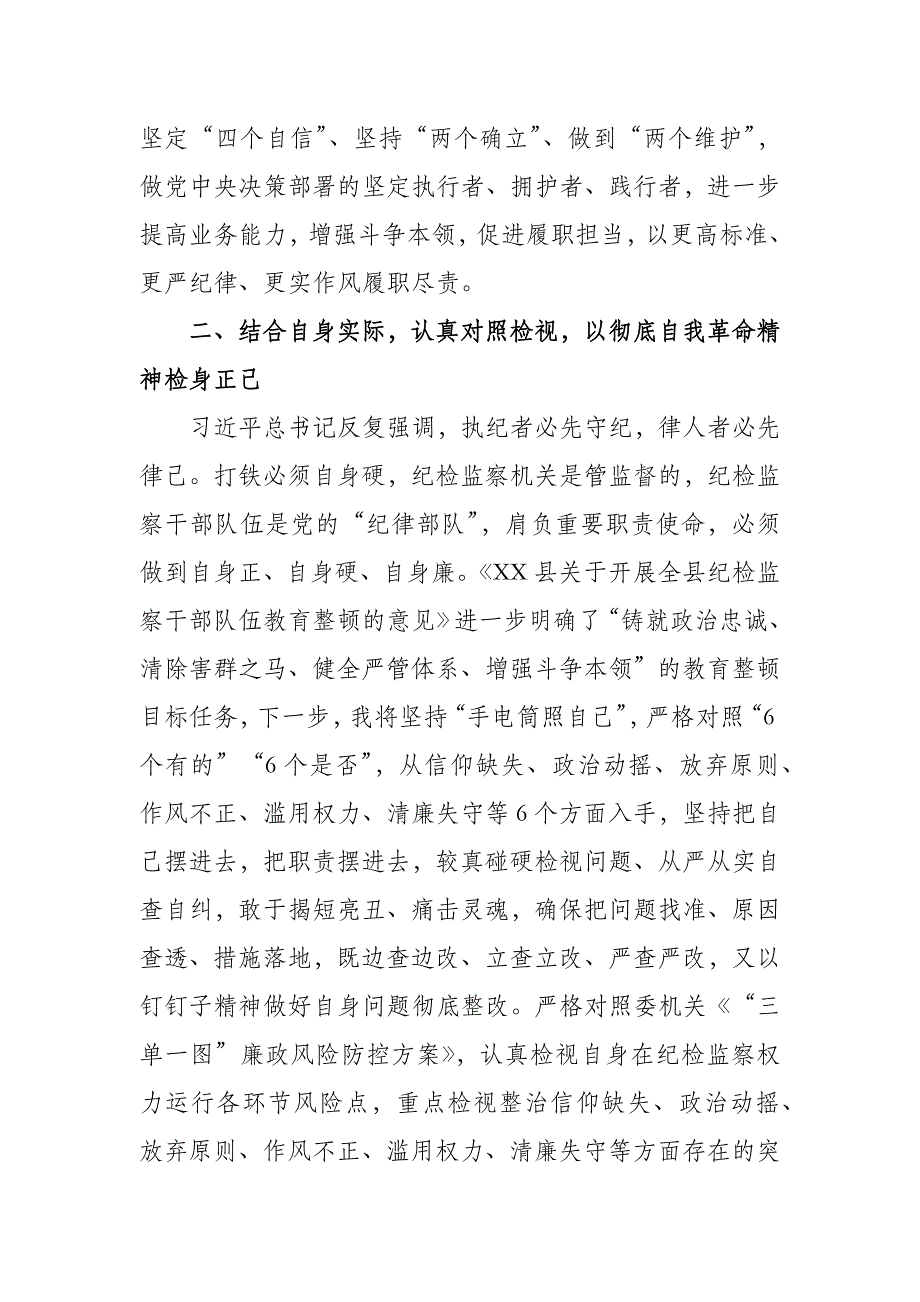 坚定“四个自信”、坚持“两个确立”、做到“两个维护”，
做党中央决策部署的坚定执行者、拥护者、践行者，进一步
提高业务能力，增强斗争本领，促进履职担当，以更高标准、
更严纪律、更实作风履职尽责。
二、结合自身实际，认真对照检视，以彻底自我革命精
神检身正己
习近平总书记反复强调，执纪者必先守纪，律人者必先
律己。打铁必须自身硬，纪检监察机关是管监督的，纪检监
察干部队伍是党的“纪律部队”，肩负重要职责使命，必须
做到自身正、自身硬、自身廉。《XX 县关于开展全县纪检监
察干部队伍教育整顿的意见》进一步明确了“铸就政治忠诚、
清除害群之马、健全严管体系、增强斗争本领”的教育整顿
目标任务，下一步，我将坚持“手电筒照自己”，严格对照“6
个有的”“6 个是否”，从信仰缺失、政治动摇、放弃原则、
作风不正、滥用权力、清廉失守等 6 个方面入手，坚持把自
己摆进去，把职责摆进去，较真碰硬检视问题、从严从实自
查自纠，敢于揭短亮丑、痛击灵魂，确保把问题找准、原因
查透、措施落地，既边查边改、立查立改、严查严改，又以
钉钉子精神做好自身问题彻底整改。严格对照委机关《“三
单一图”廉政风险防控方案》，认真检视自身在纪检监察权
力运行各环节风险点，重点检视整治信仰缺失、政治动摇、
放弃原则、作风不正、滥用权力、清廉失守等方面存在的突